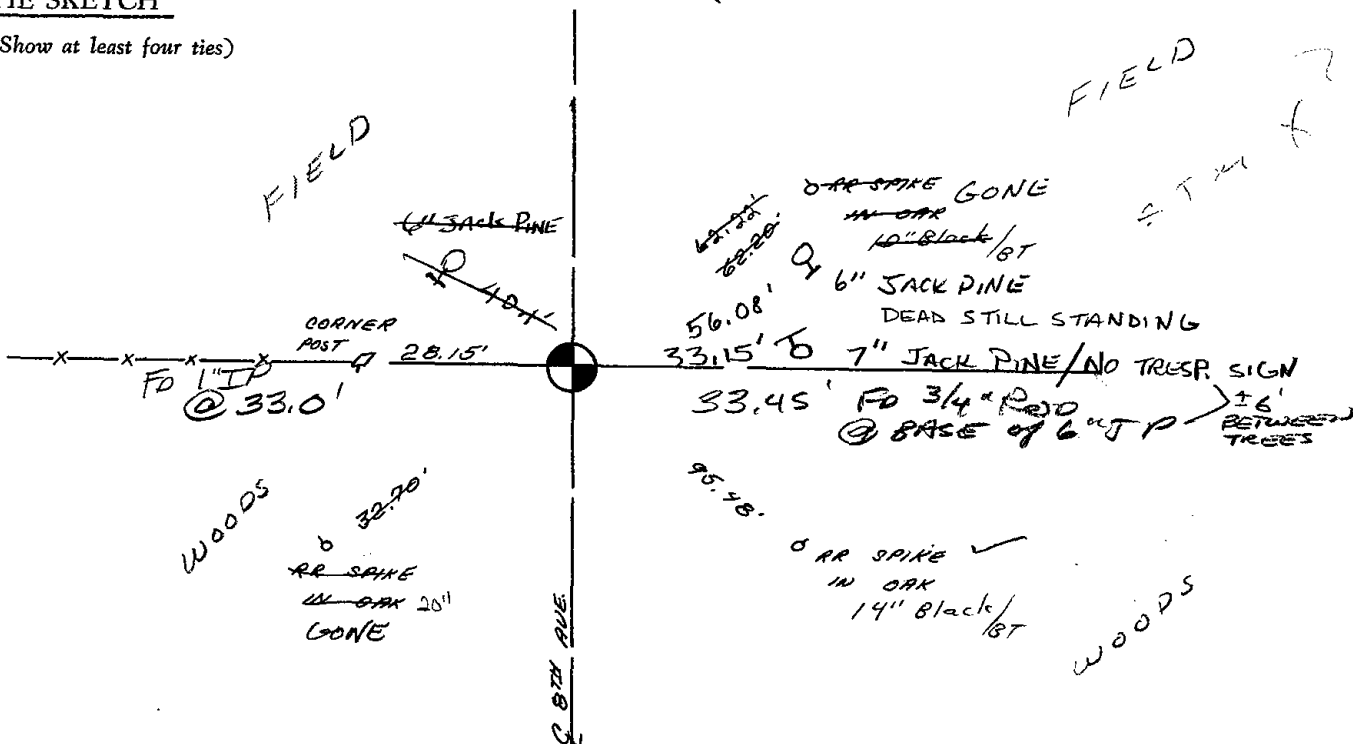 TIE SKETCH
(Show at least four ties)
FIELD
FIELD
6" JACK PINE
40±'
62.22'
62.20'
RR SPIKE GONE
IN OAK
10" Black/BT
6" JACK PINE
DEAD STILL STANDING
56.08'
CORNER
POST
28.15'
33.15' 7" JACK PINE/NO TRESP. SIGN
FD 1" IP
@ 33.0'
33.45' FD 3/4" ROD
@ BASE of 6" J P
±6'
BETWEEN
TREES
WOODS
32.70'
RR SPIKE
IN OAK 20"
GONE
95.48'
RR SPIKE
IN OAK
14" Black/BT
WOODS
8TH AVE.